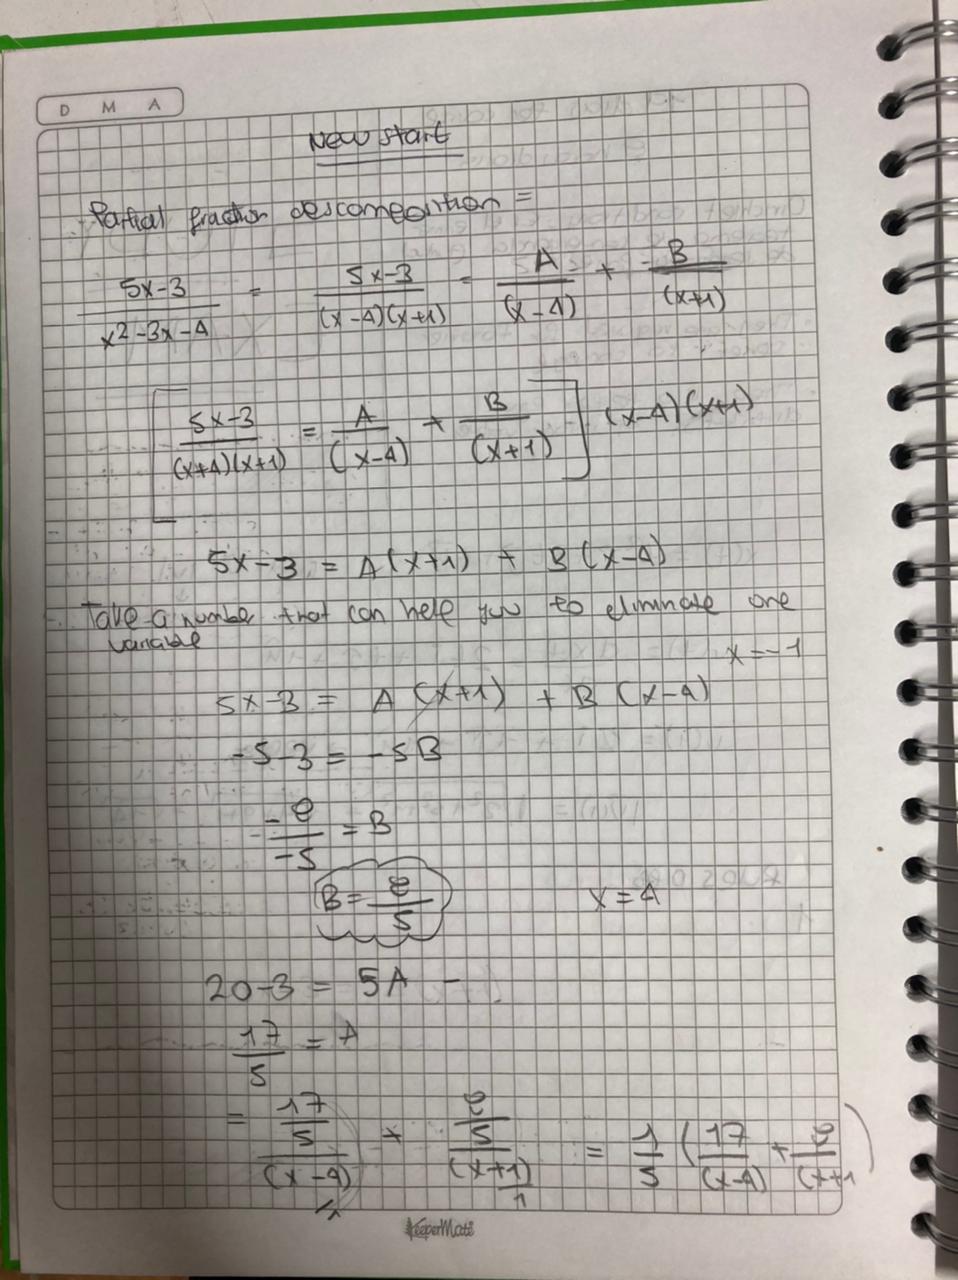 D M A
New start
Partial fraction descomposition =
5x-3 / x²-3x-4 = 5x-3 / (x-4)(x+1) = A / (x-4) + B / (x+1)
[ 5x-3 / (x+4)(x+1) = A / (x-4) + B / (x+1) ] (x-4)(x+1)
5x-3 = A(x+1) + B(x-4)
Take a number that can help you to eliminate one
variable
x=-1
5x-3 = A (x+1) + B (x-4)
-5-3 = -5B
-8 / -5 = B
B = 8 / 5
x=4
20-3 = 5A -
17 / 5 = A
= 17/5 / (x-4) + 8/5 / (x+1) = 1/5 ( 17 / (x-4) + 8 / (x+1 )
1 1
KeeperMate